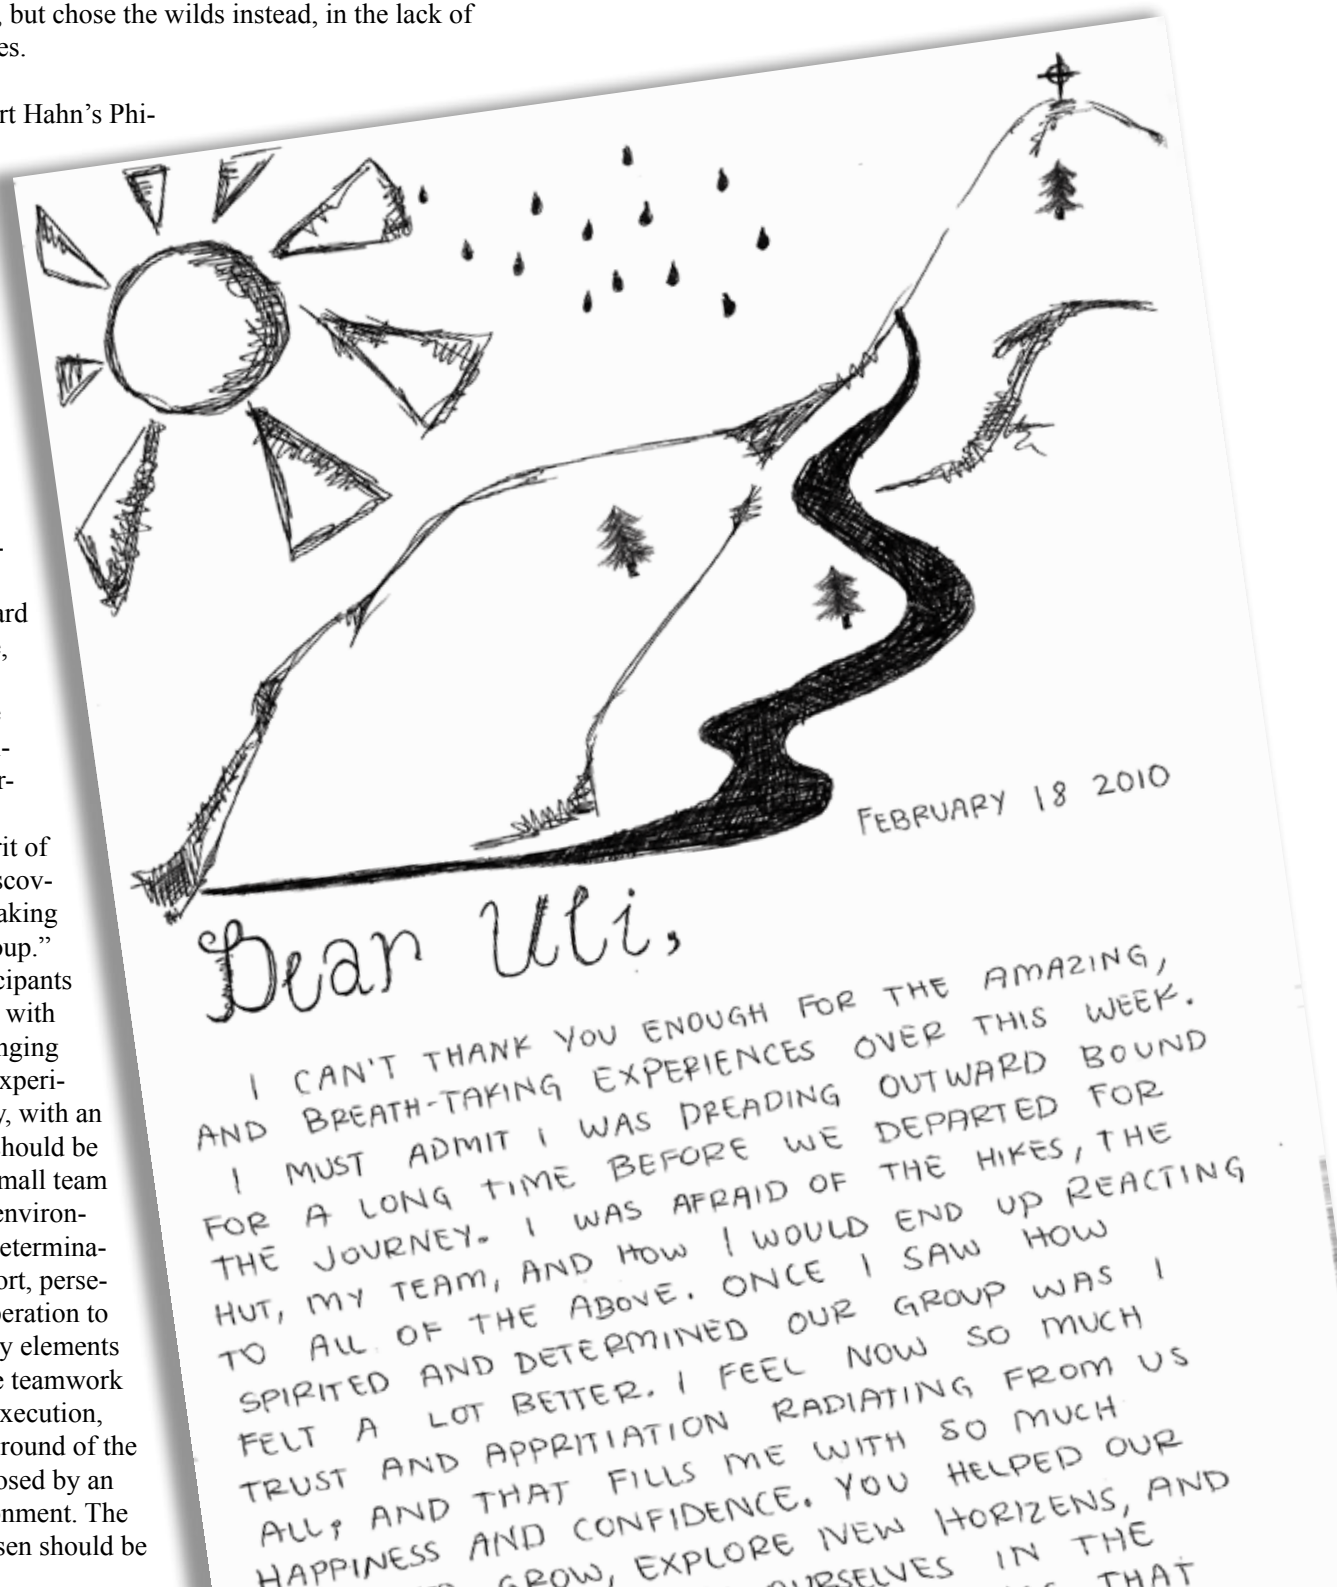 , but chose the wilds instead, in the lack of
es.
rt Hahn’s Phi-
-
ard
,
-
r-
rit of
scov-
aking
oup.”
cipants
with
nging
xperi-
y, with an
hould be
mall team
environ-
etermina-
ort, perse-
peration to
y elements
e teamwork
xecution,
round of the
osed by an
onment. The
sen should be
FEBRUARY 18 2010
Dear Uli,
I CAN'T THANK YOU ENOUGH FOR THE AMAZING,
AND BREATH-TAKING EXPERIENCES OVER THIS WEEK.
I MUST ADMIT I WAS DREADING OUTWARD BOUND
FOR A LONG TIME BEFORE WE DEPARTED FOR
THE JOURNEY. I WAS AFRAID OF THE HIKES, THE
HUT, MY TEAM, AND HOW I WOULD END UP REACTING
TO ALL OF THE ABOVE. ONCE I SAW HOW
SPIRITED AND DETERMINED OUR GROUP WAS I
FELT A LOT BETTER. I FEEL NOW SO MUCH
TRUST AND APPRITIATION RADIATING FROM US
ALL, AND THAT FILLS ME WITH SO MUCH
HAPPINESS AND CONFIDENCE. YOU HELPED OUR
GROW, EXPLORE NEW HORIZENS, AND
OURSELVES IN THE
THAT